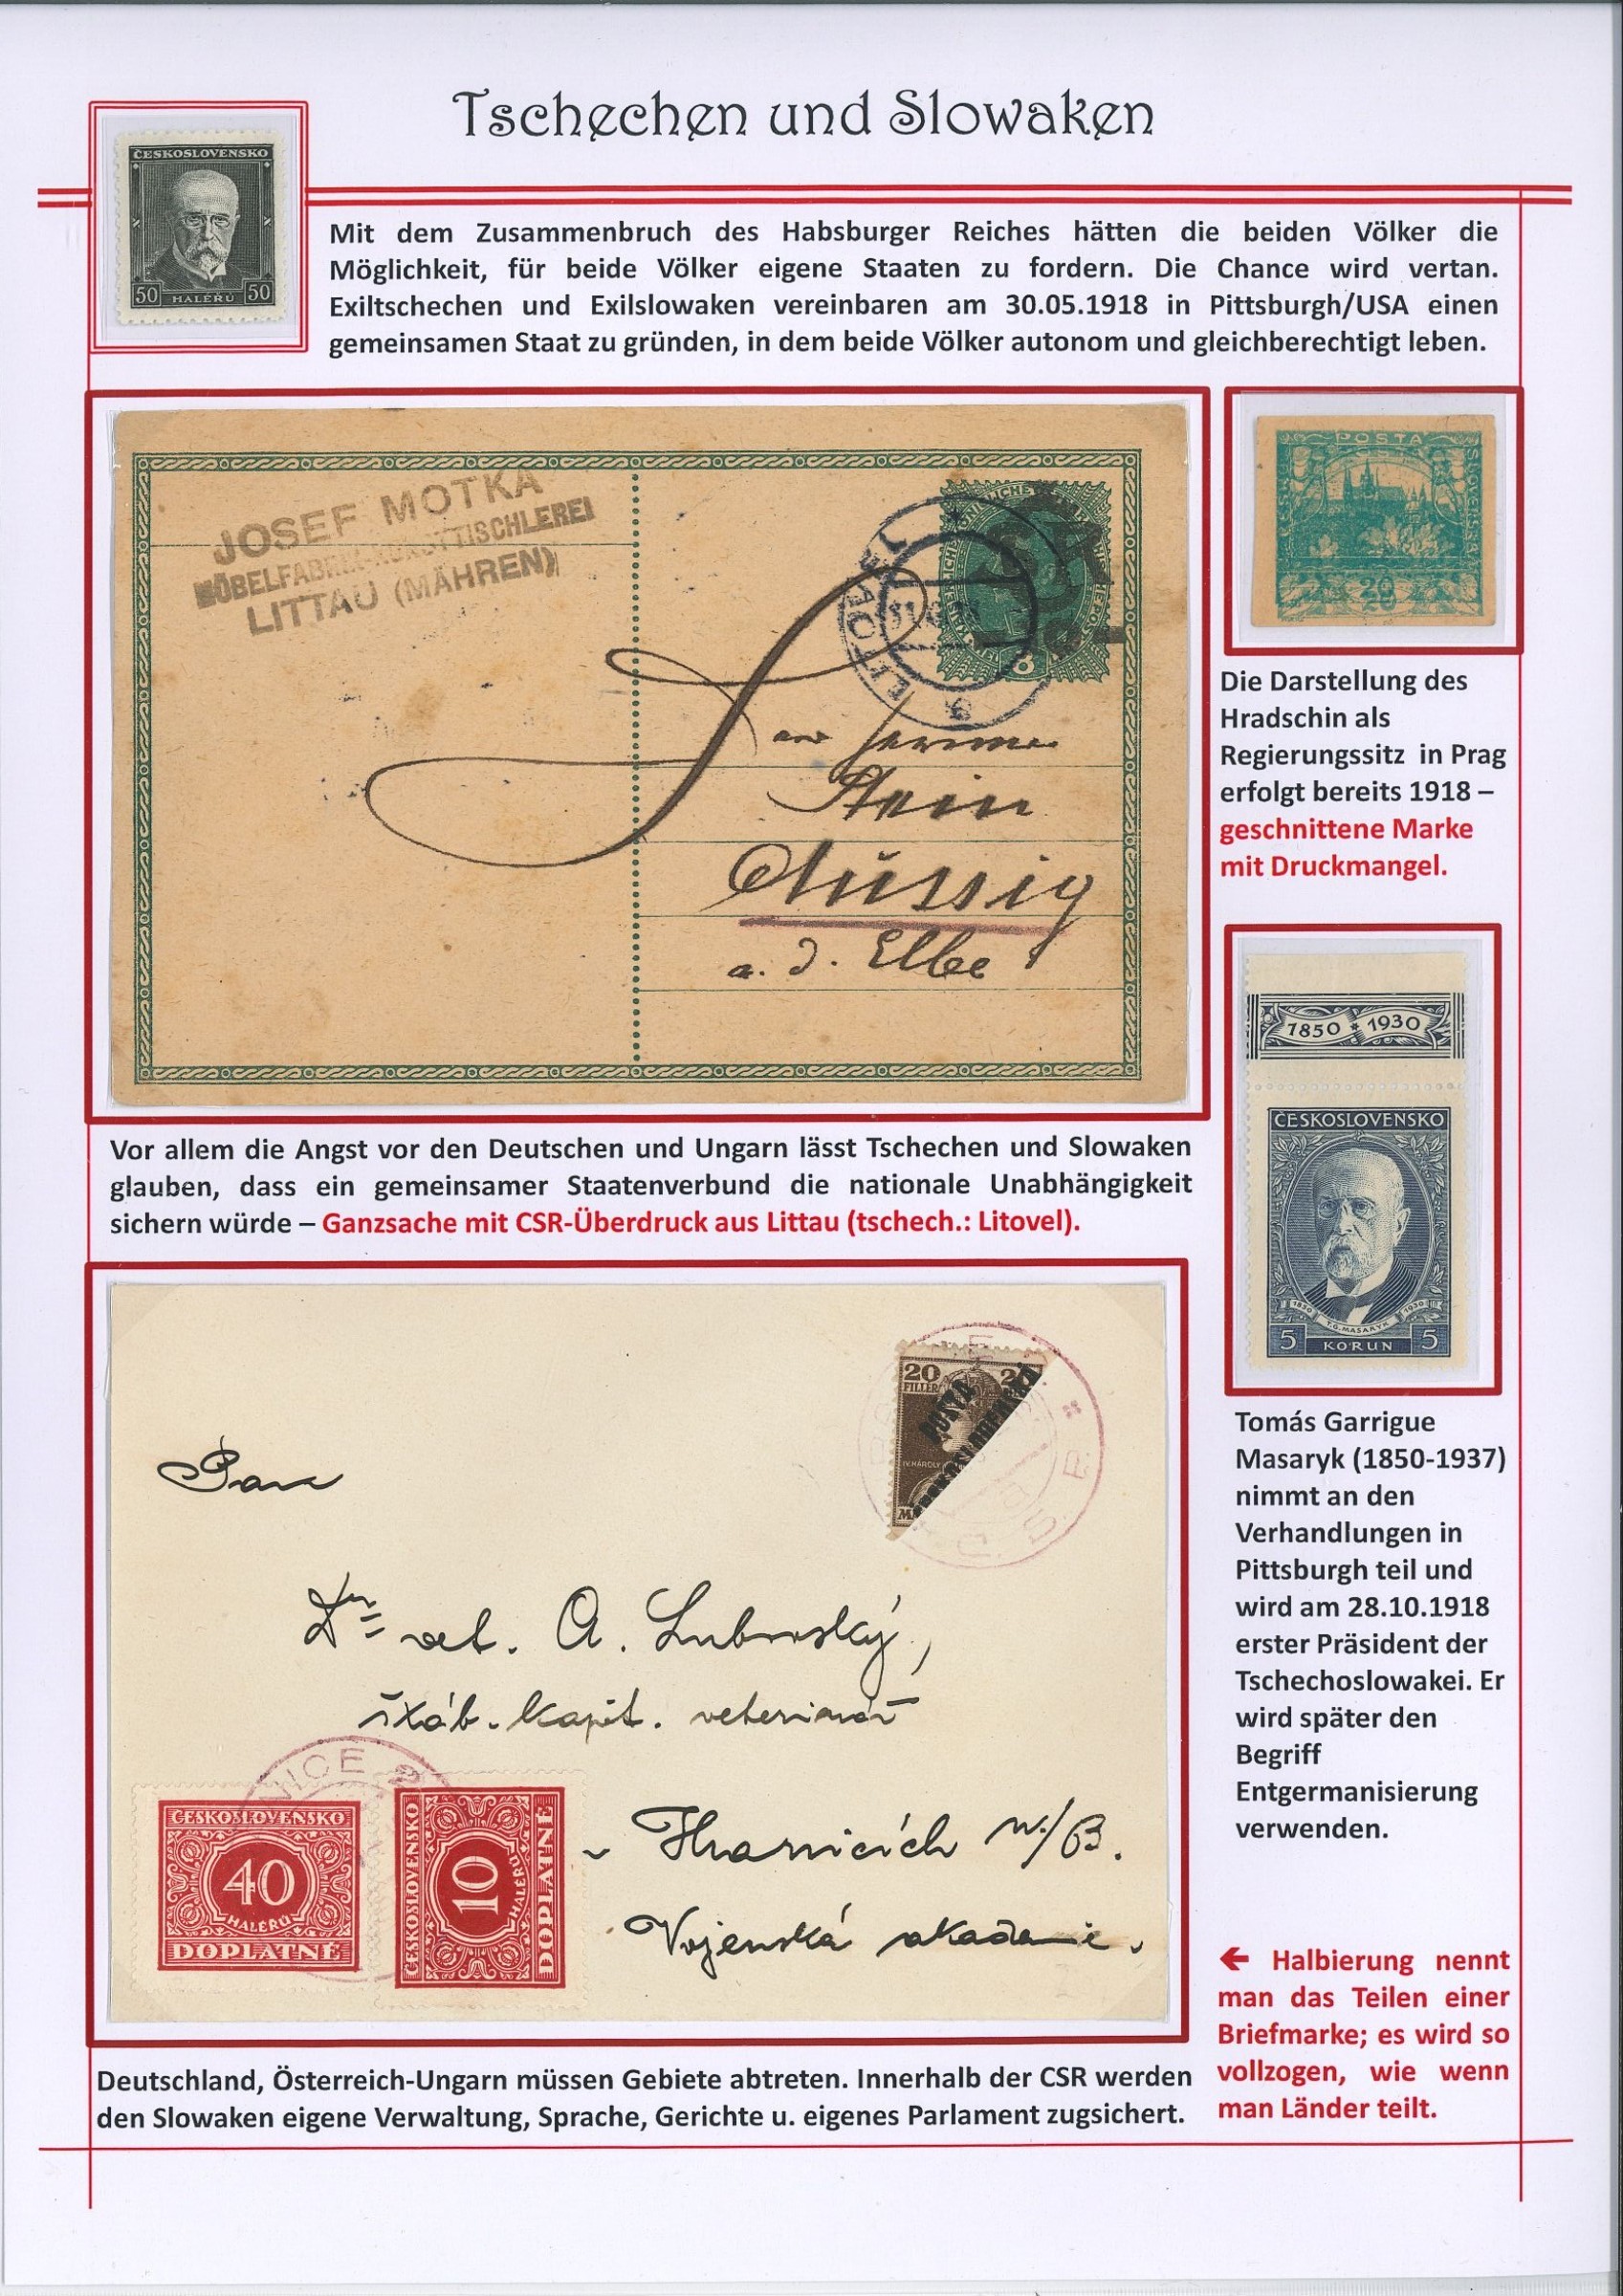 Tschechen und Slowaken
ČESKOSLOVENSKO
50 HALÉRŮ 50
Mit dem Zusammenbruch des Habsburger Reiches hätten die beiden Völker die
Möglichkeit, für beide Völker eigene Staaten zu fordern. Die Chance wird vertan.
Exiltschechen und Exilslowaken vereinbaren am 30.05.1918 in Pittsburgh/USA einen
gemeinsamen Staat zu gründen, in dem beide Völker autonom und gleichberechtigt leben.
JOSEF MOTKA
LITTAU (MÄHREN)
LITOVEL
8
Stein
Aussig
a. d. Elbe
POSTA
20
Die Darstellung des
Hradschin als
Regierungssitz in Prag
erfolgt bereits 1918 –
geschnittene Marke
mit Druckmangel.
1850 * 1930
ČESKOSLOVENSKO
1850 T.G. MASARYK 1930
5 KORUN 5
Vor allem die Angst vor den Deutschen und Ungarn lässt Tschechen und Slowaken
glauben, dass ein gemeinsamer Staatenverbund die nationale Unabhängigkeit
sichern würde – Ganzsache mit CSR-Überdruck aus Littau (tschech.: Litovel).
20
FILLÉR
POSTA
IV. KÁROLY
Pan
Dr vet. A.
škáb. kapit. veterinář
Hranicích
Vojenská akademie.
ČESKOSLOVENSKO
40
HALÉŘŮ
DOPLATNÉ
ČESKOSLOVENSKO
10
HALÉŘŮ
DOPLATNÉ
Tomás Garrigue
Masaryk (1850-1937)
nimmt an den
Verhandlungen in
Pittsburgh teil und
wird am 28.10.1918
erster Präsident der
Tschechoslowakei. Er
wird später den
Begriff
Entgermanisierung
verwenden.
← Halbierung nennt
man das Teilen einer
Briefmarke; es wird so
vollzogen, wie wenn
man Länder teilt.
Deutschland, Österreich-Ungarn müssen Gebiete abtreten. Innerhalb der CSR werden
den Slowaken eigene Verwaltung, Sprache, Gerichte u. eigenes Parlament zugsichert.